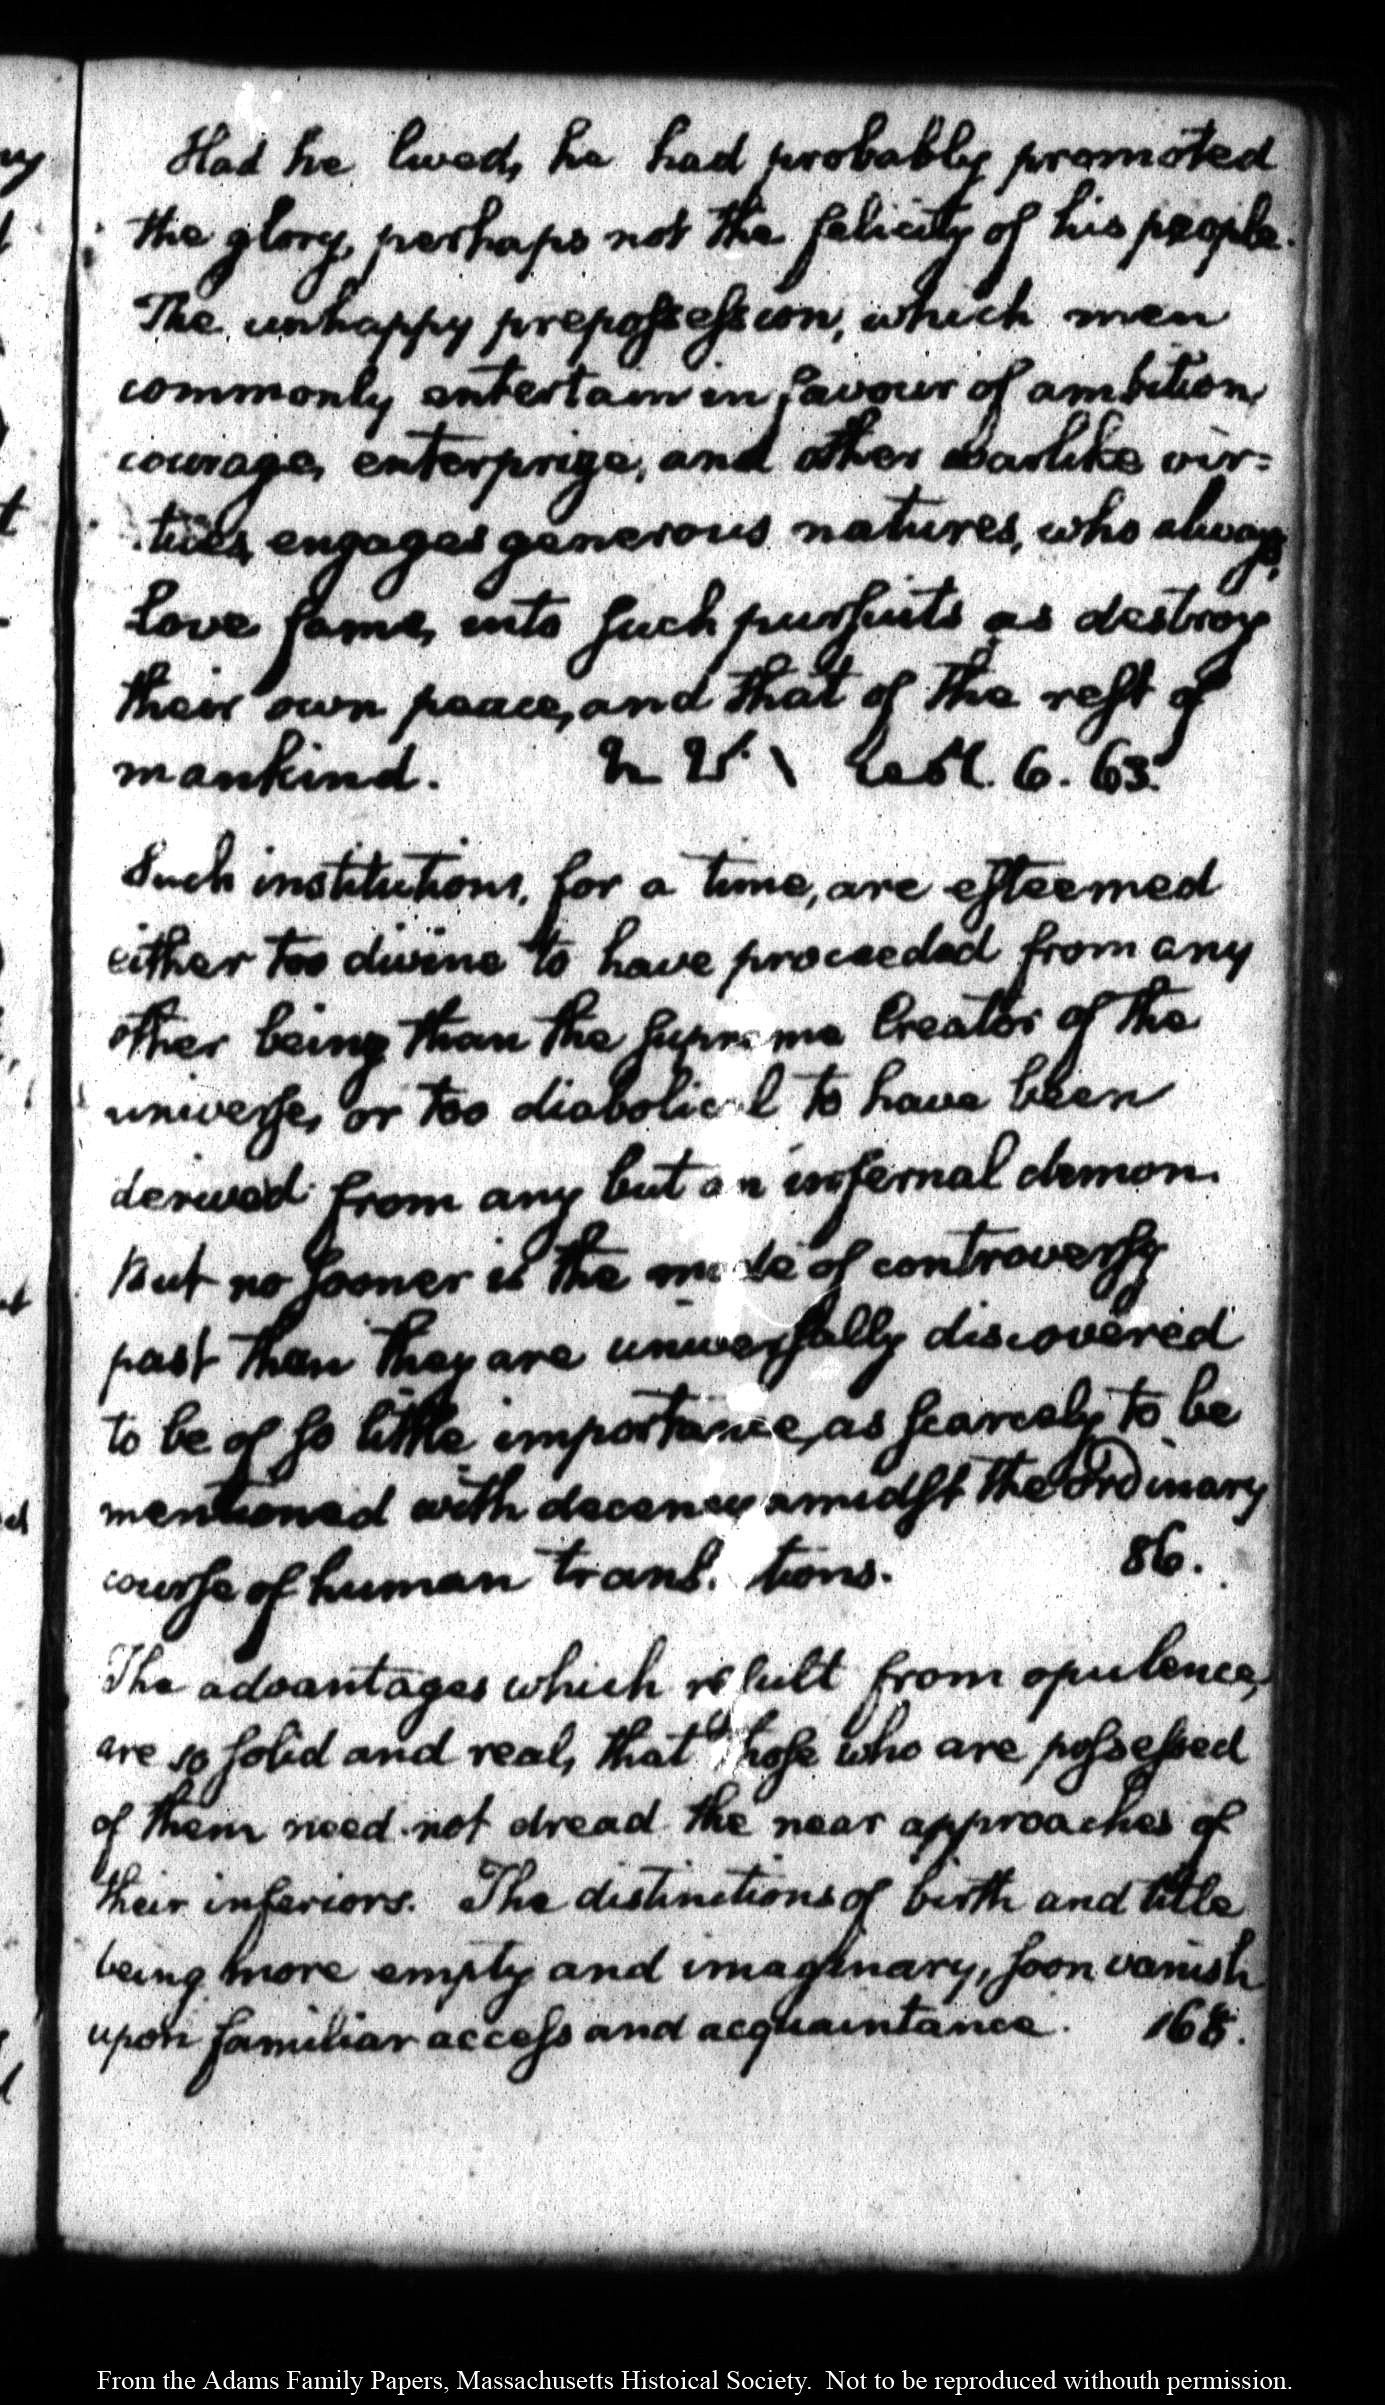 Had he lived, he had probably promoted
the glory, perhaps not the felicity of his people.
The unhappy prepossession, which men
commonly entertain in favour of ambition,
courage, enterprize, and other warlike vir=
tues, engages generous natures, who always
love fame, into such pursuits as destroy
their own peace, and that of the rest of
mankind. 6. 63.
Such institutions, for a time, are esteemed
either too divine to have proceeded from any
other being than the supreme Creator of the
universe, or too diabolical to have been
derived from any but an infernal demon.
But no sooner is the mode of controversy
past than they are universally discovered
to be of so little importance, as scarcely to be
mentioned with decency amidst the ordinary
course of human tions. 86.
The advantages which result from opulence,
are so solid and real, that those who are possessed
of them need not dread the near approaches of
their inferiors. The distinctions of birth and title
being more empty and imaginary, soon vanish
upon familiar access and acquaintance. 168.
From the Adams Family Papers, Massachusetts Histoical Society. Not to be reproduced withouth permission.